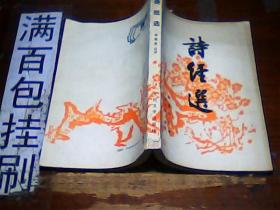 满百包挂刷
詩经選
诗经选